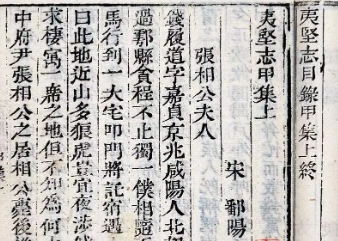 夷堅志目錄甲集上終
夷堅志甲集上
宋 鄱陽
張相公夫人
錢履道字嘉貞京兆咸陽人北
過鄠縣貪程不止獨一僕相隨
馬行到一大宅叩門將託宿遇
曰此地近山多狼虎豈宜夜涉
求棲寓一席之地但不知為何
中府尹張相公之居相公薨後